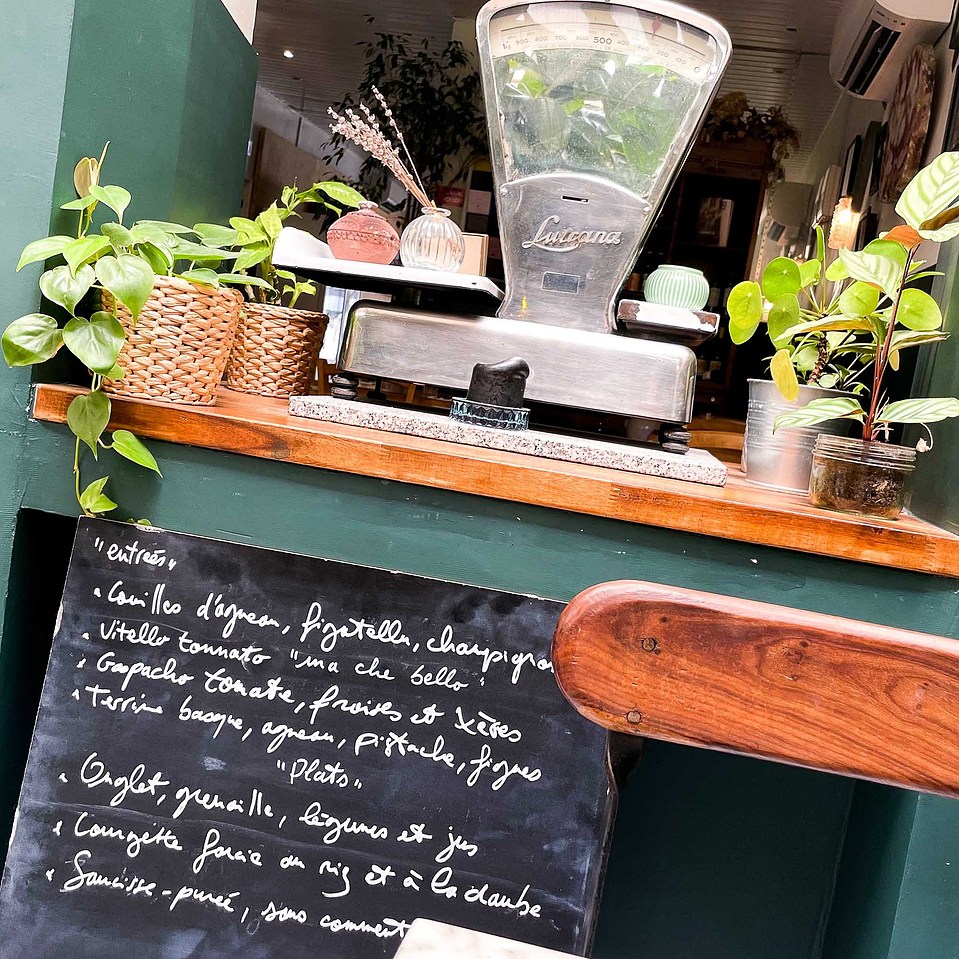 500
Luigana
"entrées"
• Couilles d'agneau, figatellu, champignon
• Vitello tonnato "ma che bello"
• Gaspacho tomate, fraises et Xérès
• Terrine basque, agneau, pistache, figues
"Plats"
• Onglet, grenaille, légumes et jus
• Courgette farcie au riz et à la daube
• Saucisse-purée, sans comment